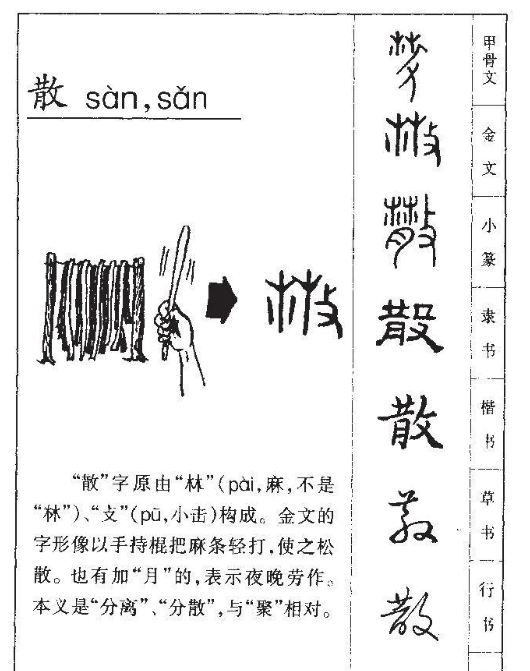 散 sàn, sǎn
“散”字原由“𣏟”(pài,麻,不是
“林”)、“攴”(pū,小击)构成。金文的
字形像以手持棍把麻条轻打,使之松
散。也有加“月”的,表示夜晚劳作。
本义是“分离”、“分散”,与“聚”相对。
散
散
散
散
甲骨文
金文
小篆
隶书
楷书
草书
行书